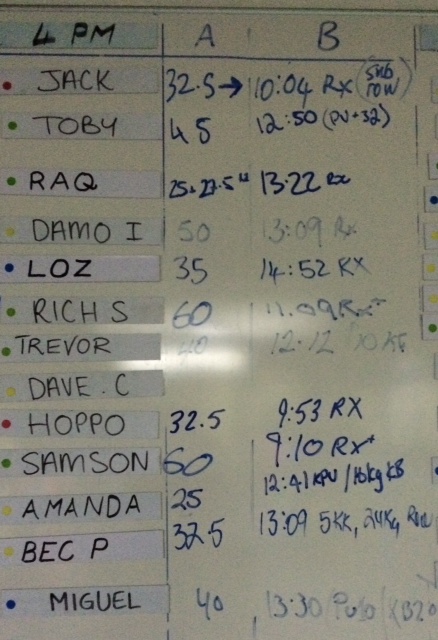 4 PM A B
JACK 32.5→ 10:04 Rx (sub row)
TOBY 45 12:50 (PU+32)
RAQ 13:22 Rx
DAMO I 50 13:09 Rx
LOZ 35 14:52 RX
RICH S 60 11:09 Rx+
TREVOR 40 12:12 10 KG
DAVE.C
HOPPO 32.5 9:53 RX
SAMSON 60 9:10 Rx+
AMANDA 25 12:41 KPU/16kg KB
BEC P 32.5 13:09 24Kg Row
MIGUEL 40 13:30